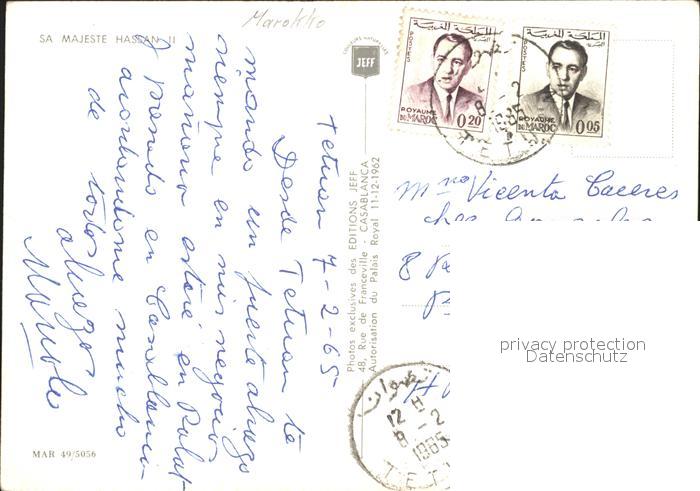 SA MAJESTE HASSAN II
Marokko
COULEURS NATURELLES
JEFF
المملكة المغربية
POSTES
ROYAUME
DU MAROC 0.20
المملكة المغربية
POSTES
ROYAUME
DU MAROC 0.05
Tetuan 7-2-65
Desde Tetuan te
mando un fuerte abrazo
siempre en mis negocios
mañana estaré en Rabat
y pasado en Casablanca
acordandome mucho
de todos
abrazos
Manolo
Photos exclusives des EDITIONS JEFF
48, Rue de Franceville - CASABLANCA
Autorisation du Palais Royal 11-12-1962
Vicenta Caceres
8
privacy protection
Datenschutz
تطوان
12 H
8 - 2
1965
TET
MAR 49/5056